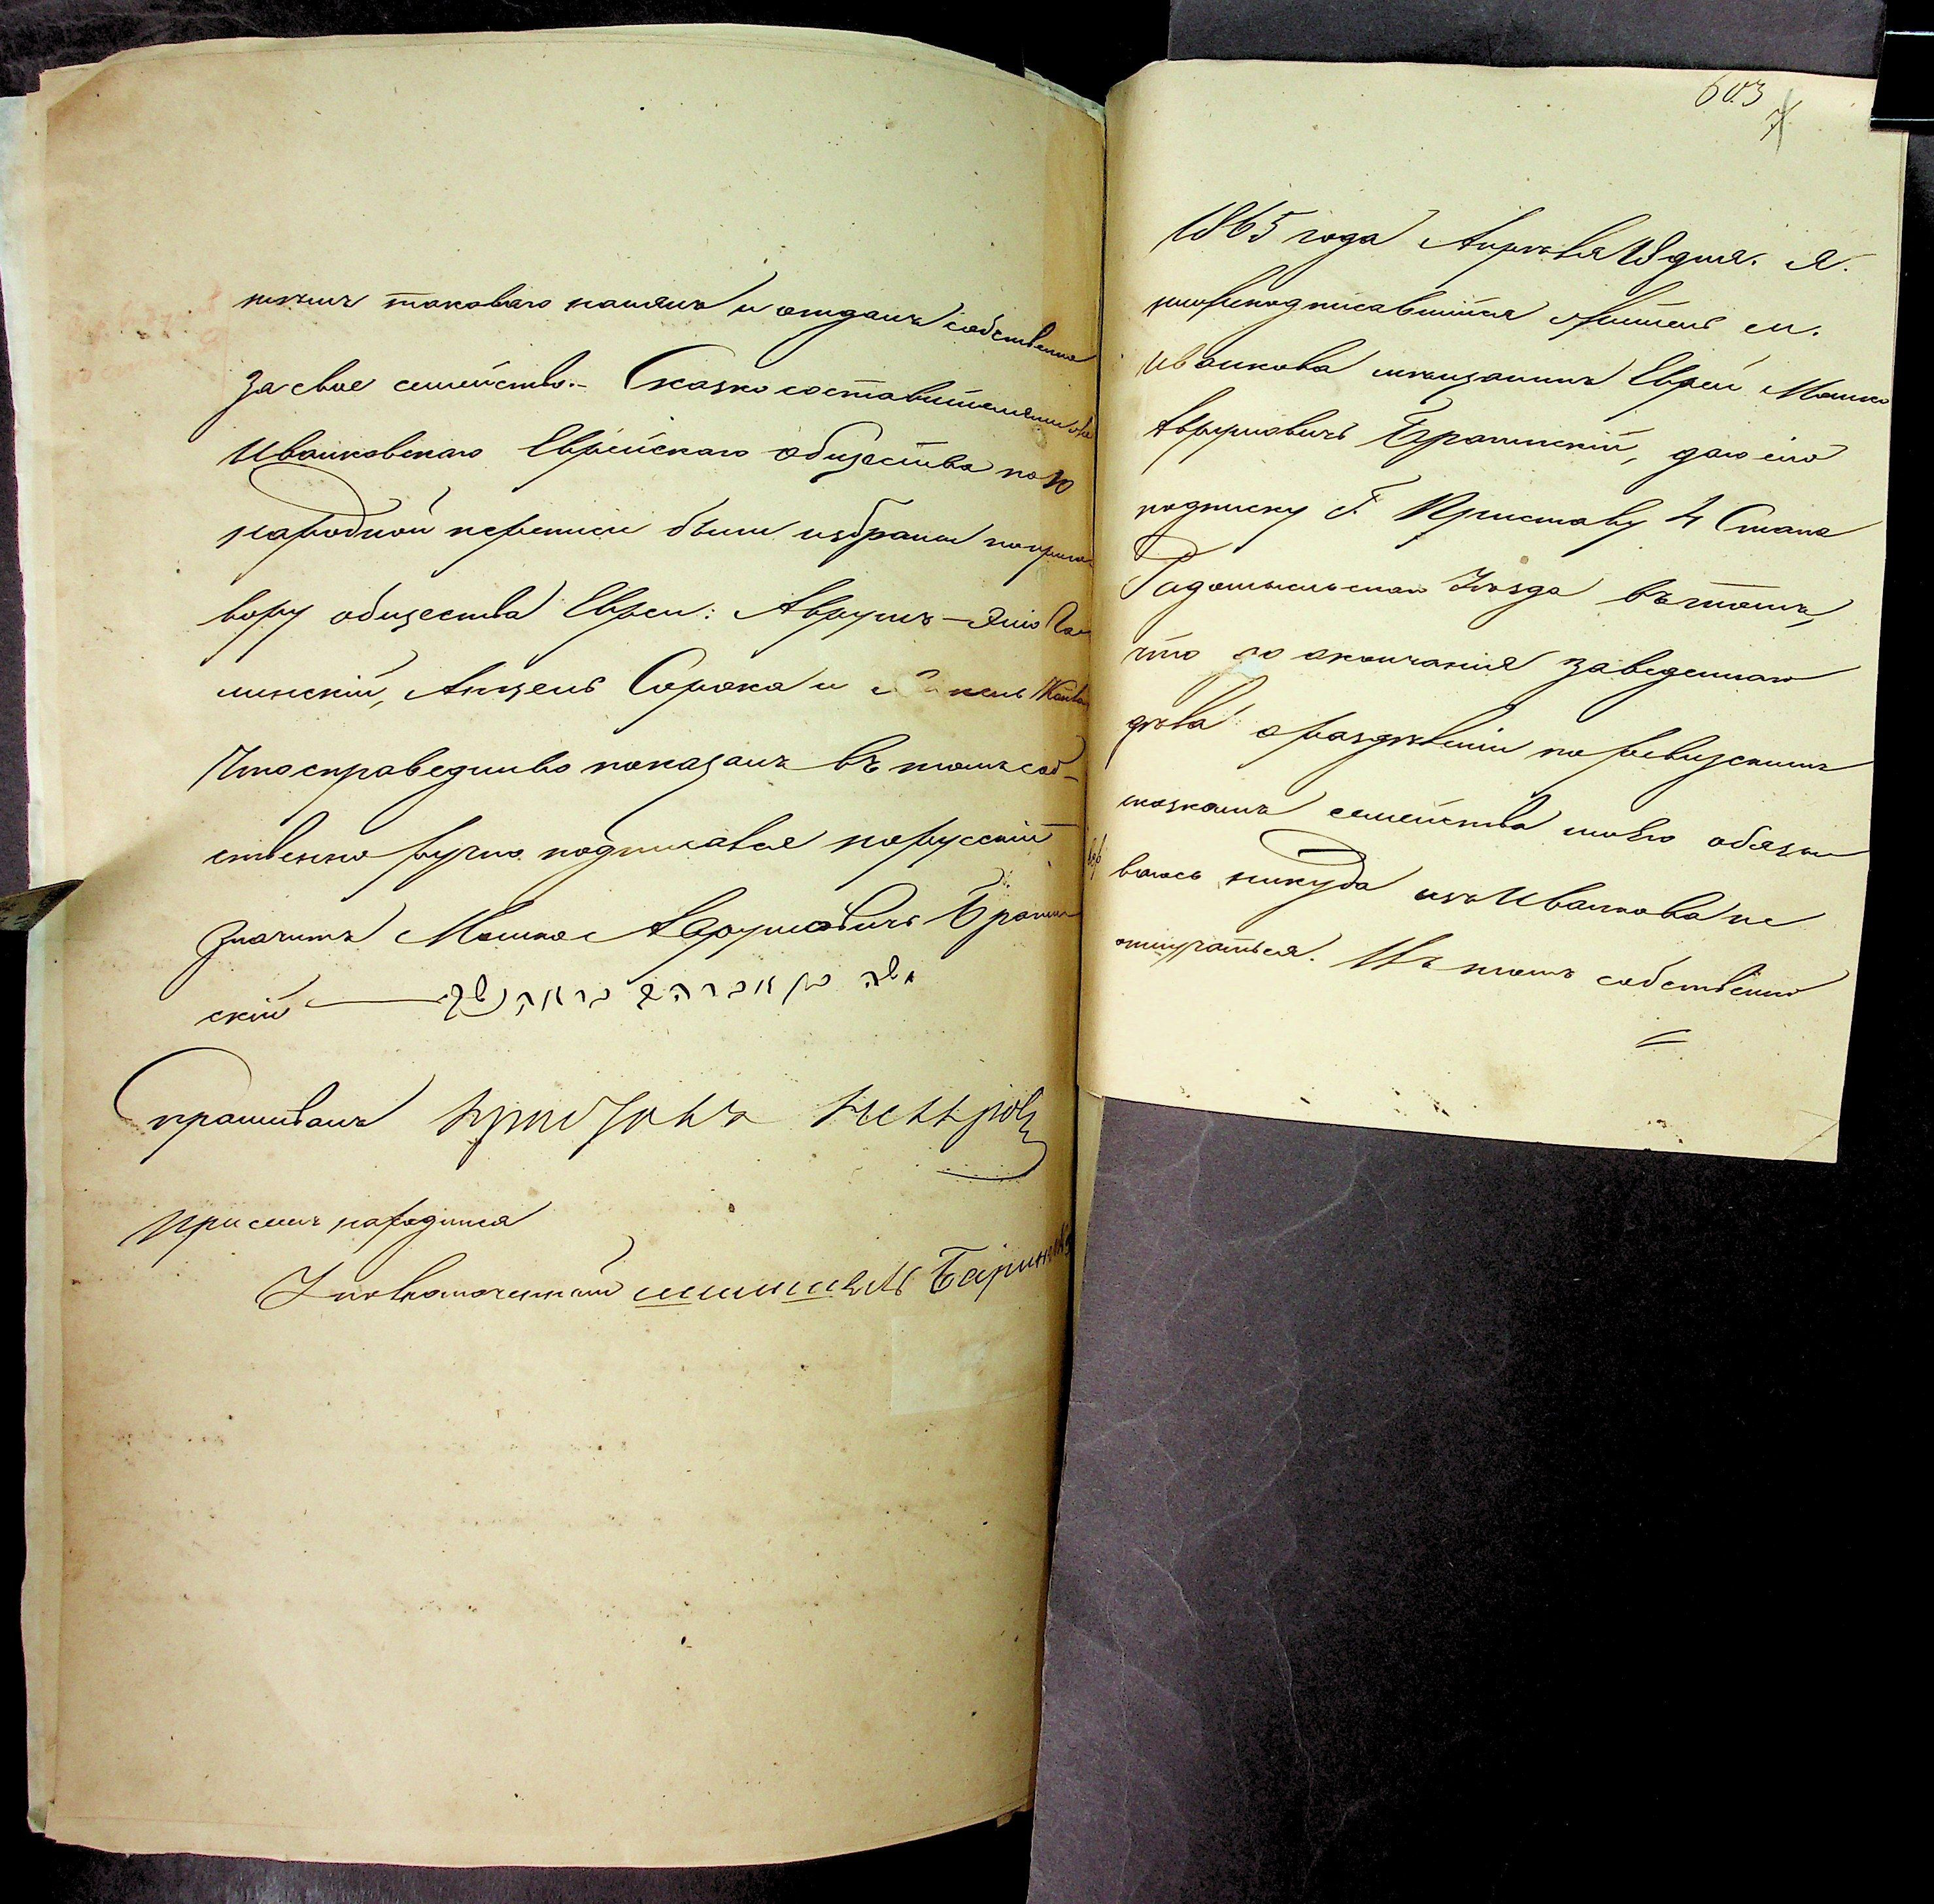 таковаго нанялъ и отданъ собственно
за свое семейство.- Сказко составителями
Иванковскаго Еврейскаго общества по 10
народной переписи были избраны по приго-
вору общества Евреи: Аврумъ-
Анцель Сорока и
Что справедливо показалъ въ томъ соб-
ственно ручно подписался порусскій
значитъ Мошко Аврумовичъ Бранин
скій
спрашивалъ
При семъ находился
Уполномоченный
603
7
1865 года Апрѣля 18 дня. Я.
нижеподписавшійся житель м.
Иванкова мѣщанинъ Еврей Мошко
Аврумовичъ Бранинскій, даю сію
подписку Г. Приставу 4 Стана
Радомысльскаго Уѣзда въ томъ,
что до окончанія заведеннаго
дѣла о раздѣленіи по ревизскимъ
сказкамъ семейства моего обязы
ваюсь никуда изъ Иванкова не
отлучаться. Въ томъ собственно